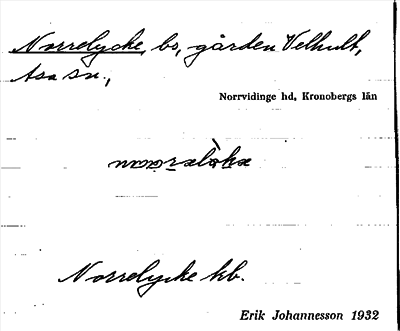 Norrelycke, bs, gården Velhult,
Asa sn.,
Norrvidinge hd, Kronobergs län
Norrelycke kb.
Erik Johannesson 1932